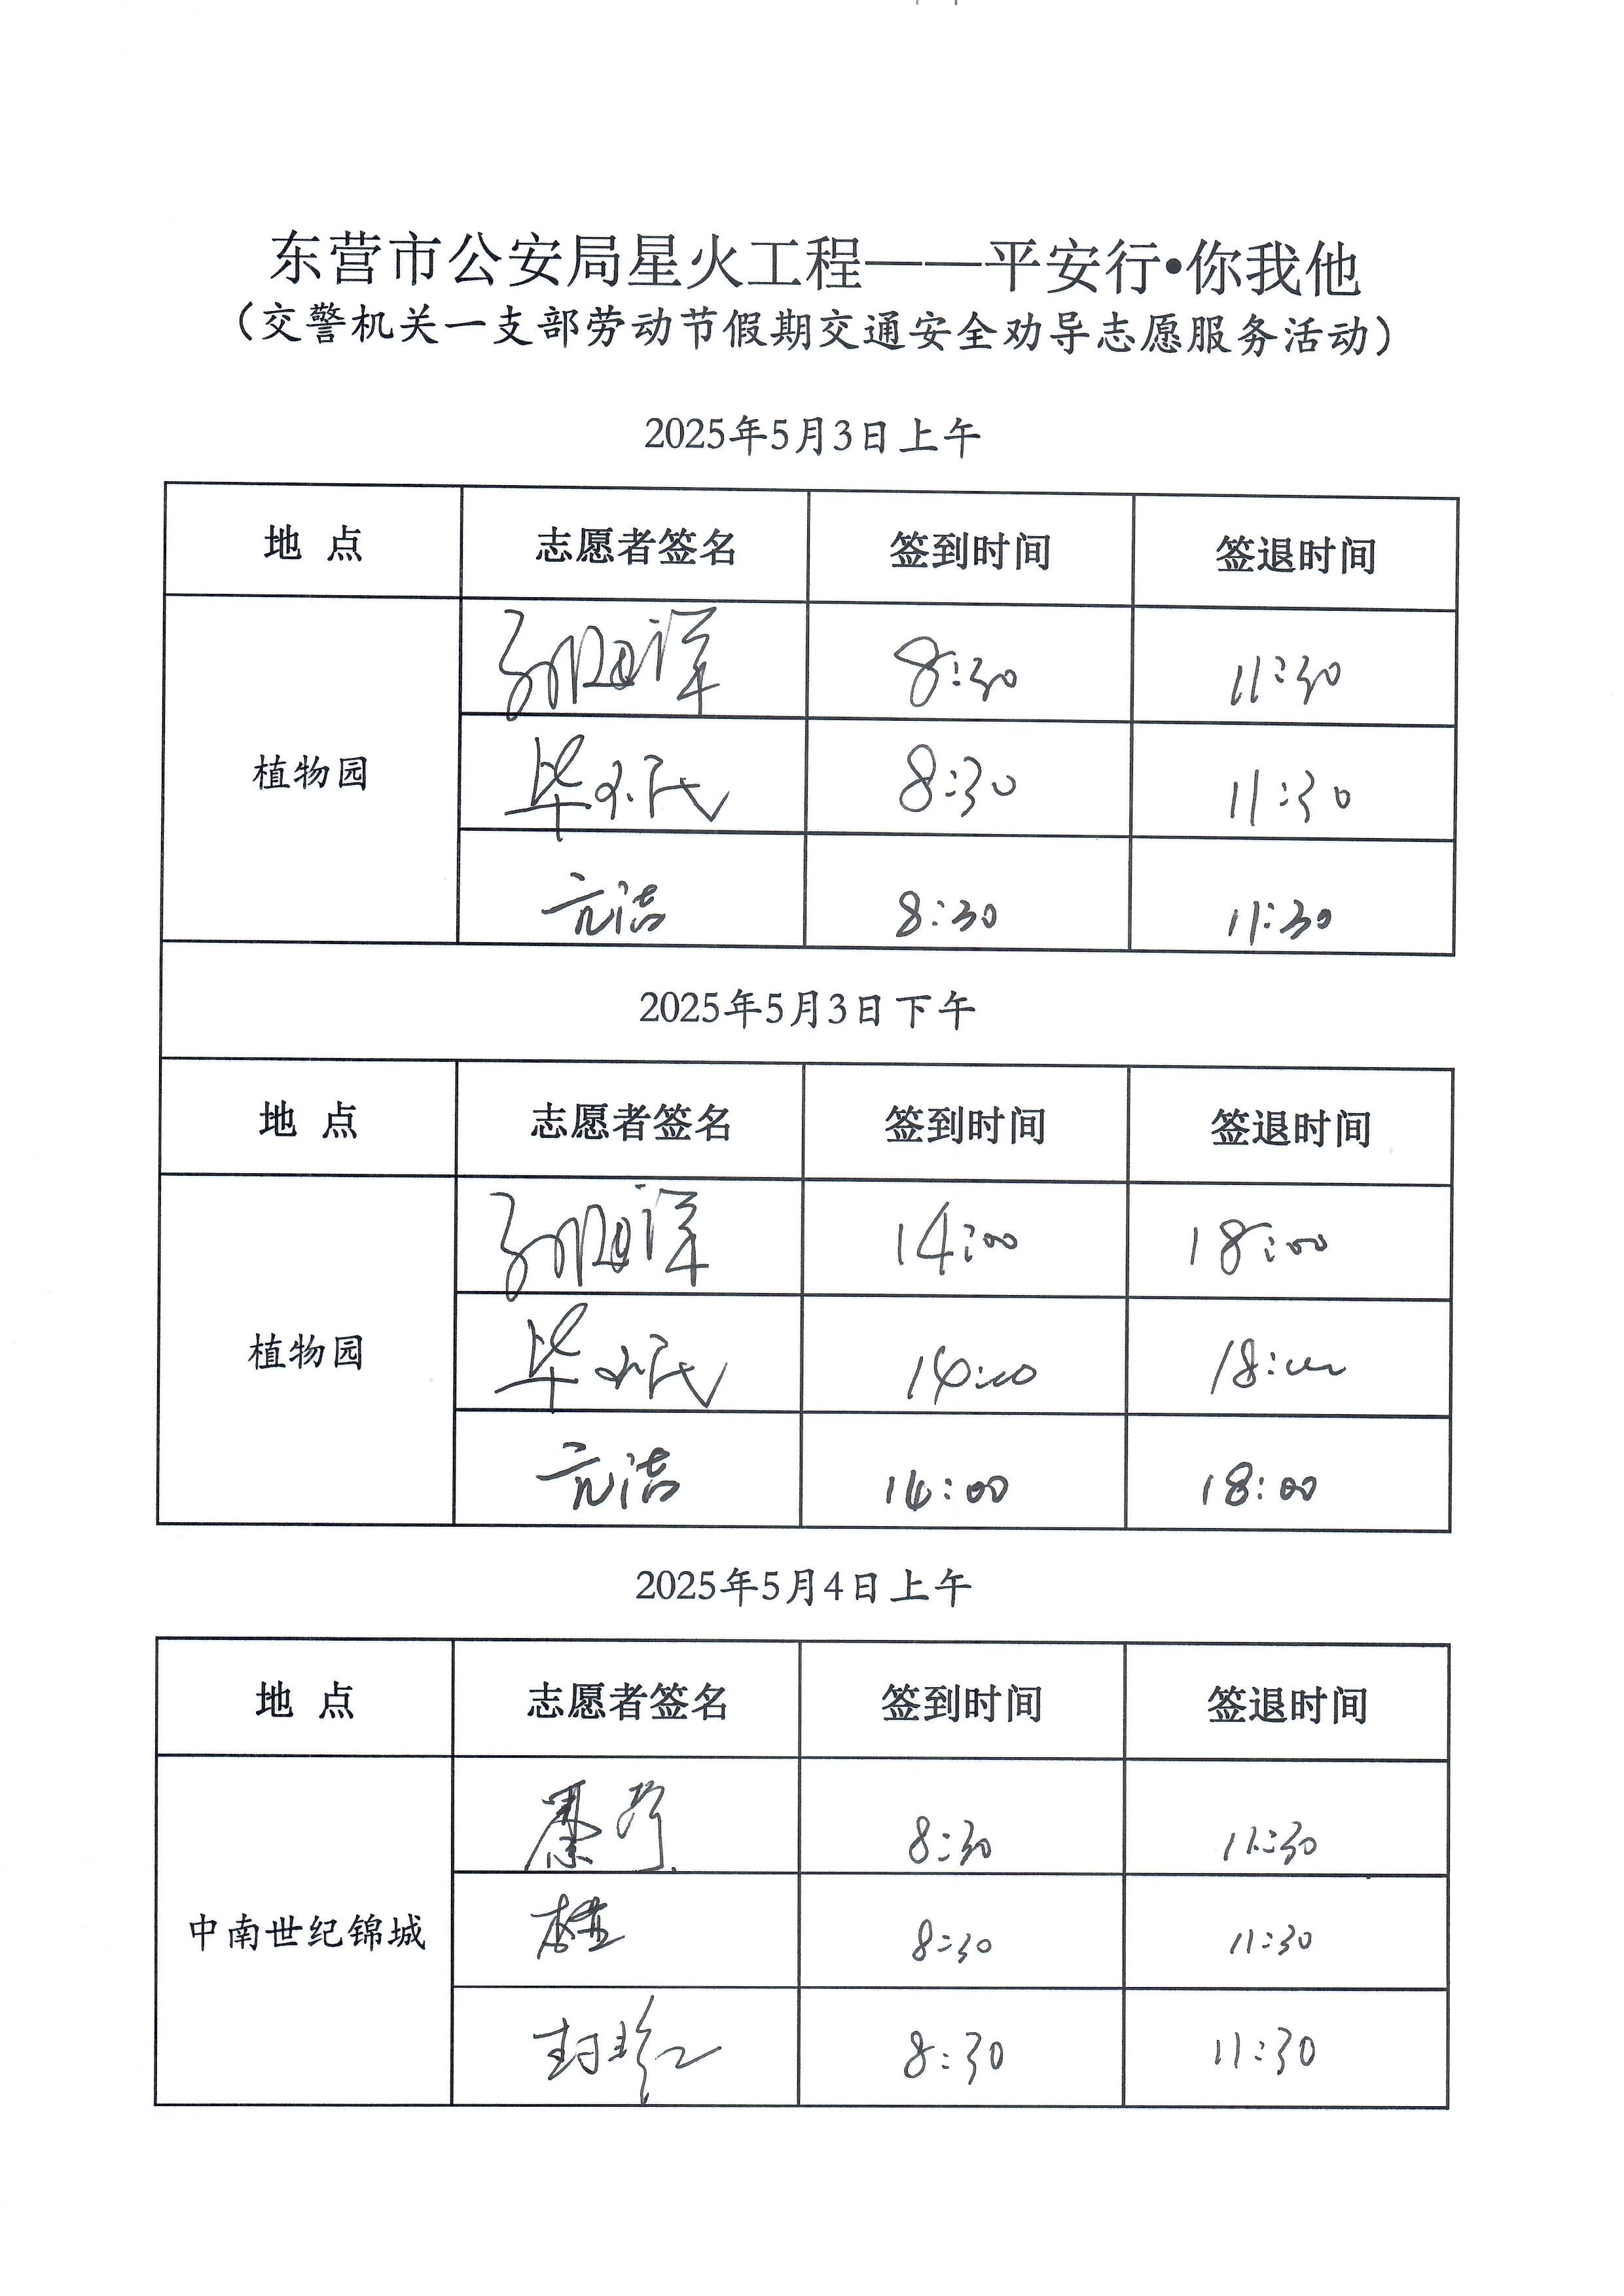 东营市公安局星火工程——平安行•你我他
（交警机关一支部劳动节假期交通安全劝导志愿服务活动）
2025年5月3日上午
地 点 志愿者签名 签到时间 签退时间
8:30 11:30
植物园 毕 8:30 11:30
亓洁 8:30 11:30
2025年5月3日下午
地 点 志愿者签名 签到时间 签退时间
14:00 18:00
植物园 毕 14:00 18:00
亓洁 14:00 18:00
2025年5月4日上午
地 点 志愿者签名 签到时间 签退时间
8:30 11:30
中南世纪锦城 8:30 11:30
封 8:30 11:30